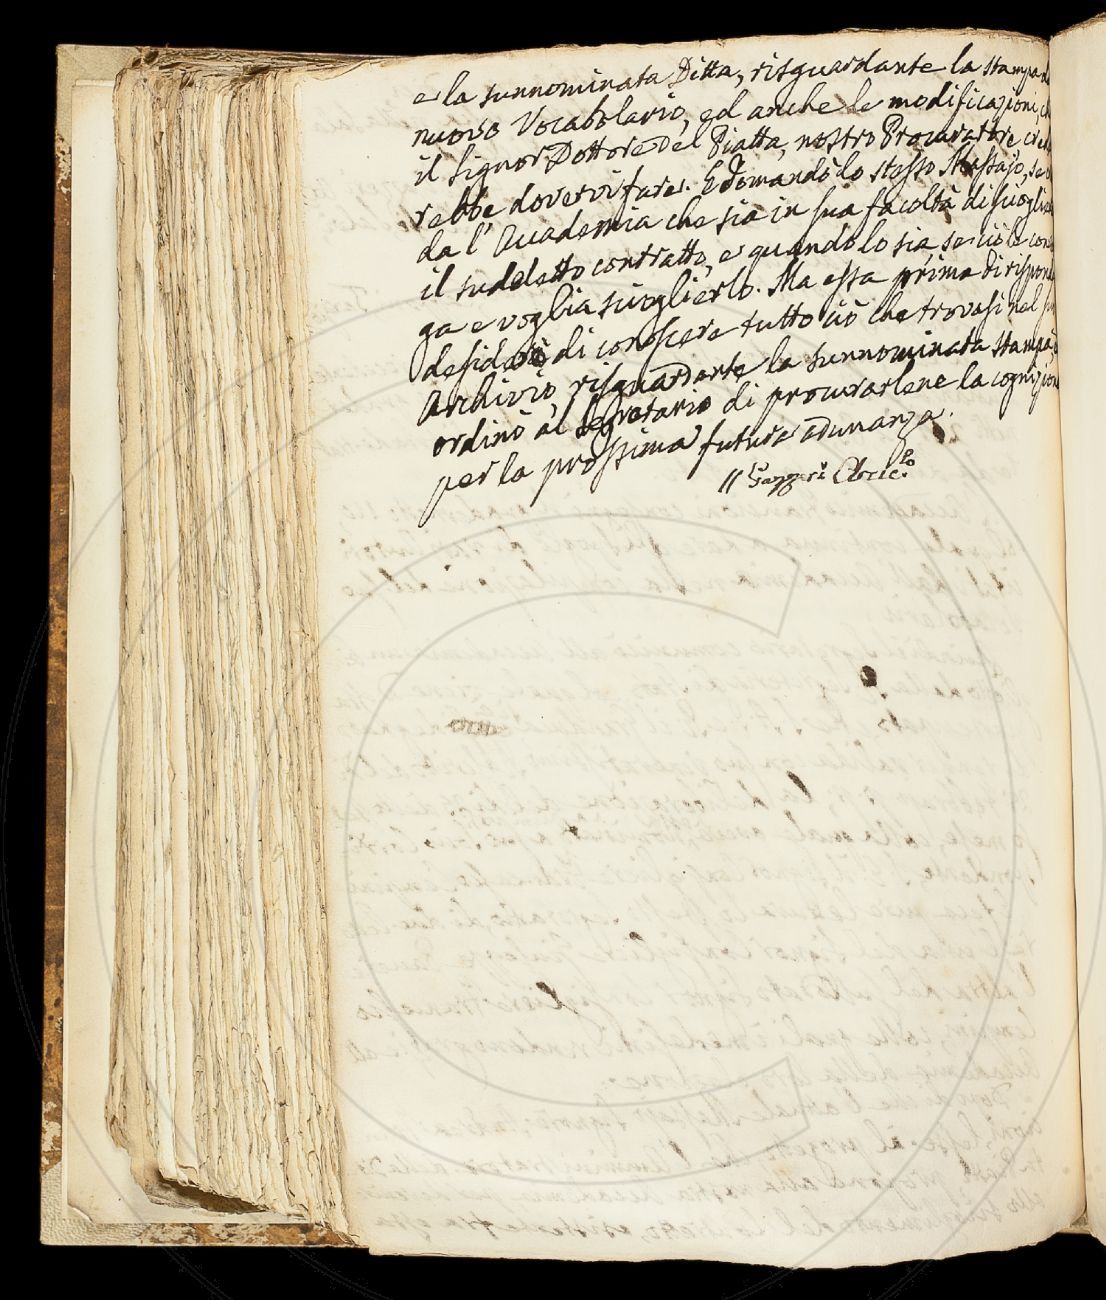 e la sunnominata Ditta, risguardante la stampa de
nuovo Vocabolario, ed anche le modificazioni, ch
il Signor Dottore Del Piatta, nostro Procuratore, cred
rebbe dovervi fare. E domandò lo stesso Massajo, se
da l'Accademia che sia in sua facoltà di sciogliere
il suddetto contratto, e quando lo sia se ciò le conv
ga e voglia scioglierlo. Ma essa prima di risponde
desiderò di conoscere tutto ciò che trovasi nel su
Archivio risguardante la sunnominata stampa,
ordinò al Segretario di procurarlene la cognizione
per la prossima futura adunanza.